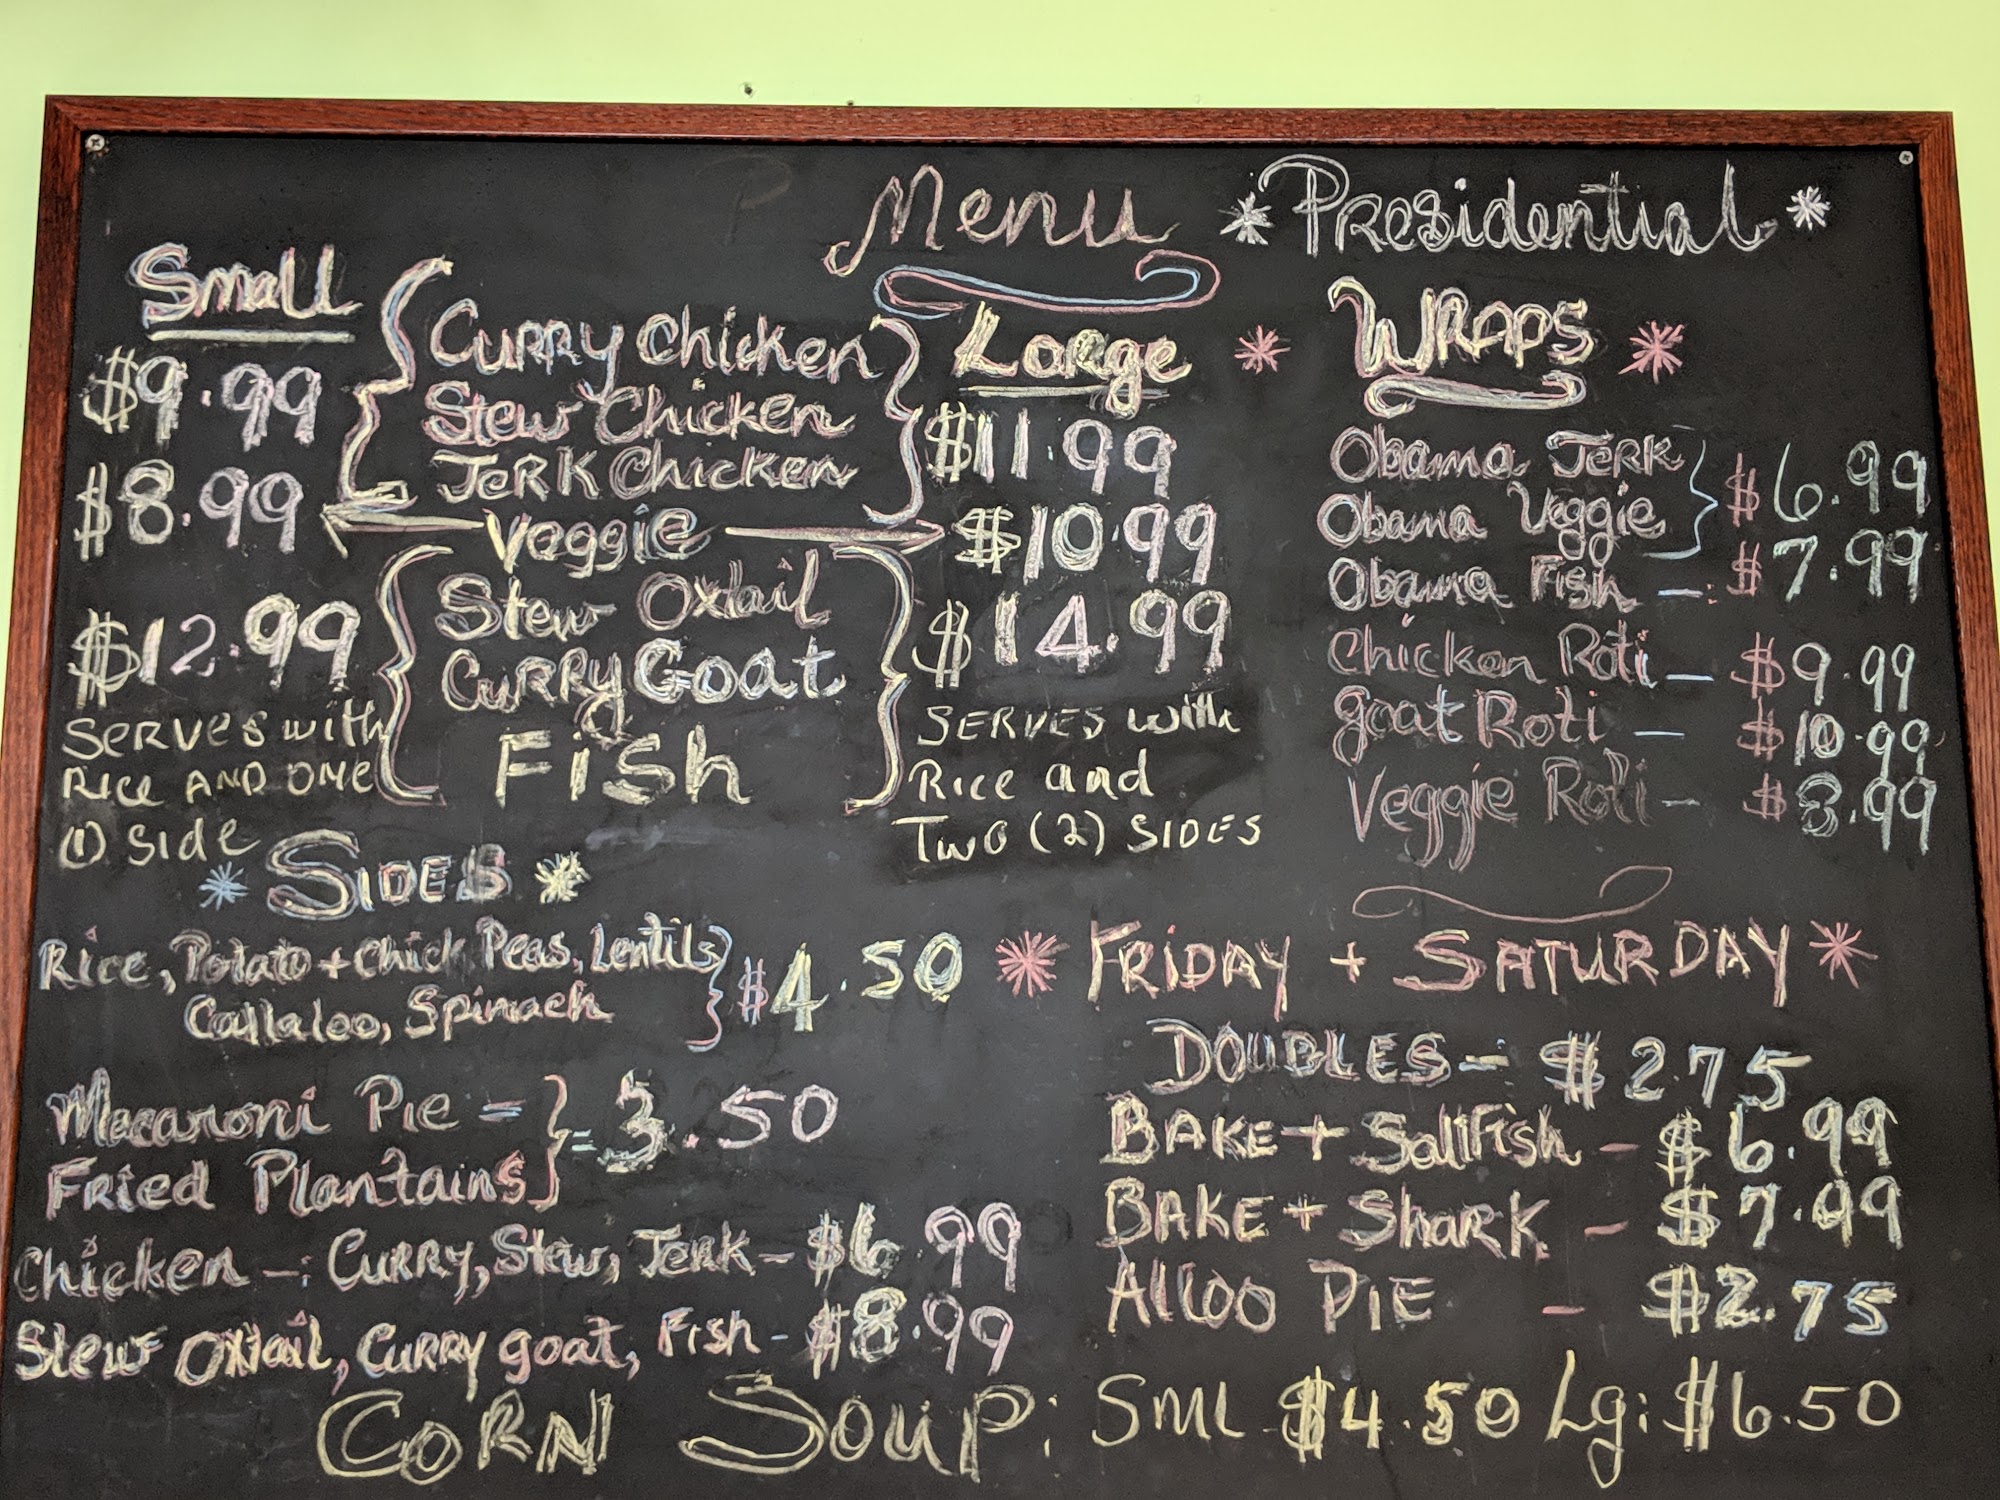 Menu
* Presidential *
Small
Large
* WRAPS *
$9.99 { Curry Chicken } $11.99
Stew Chicken
JERK Chicken
$8.99 ← Veggie → $10.99
$12.99 { Stew Oxtail } $14.99
Curry Goat
Fish
SERVES with
RICE AND ONE
(1) Side
SERVES with
Rice and
Two (2) SIDES
Obama Jerk } $6.99
Obama Veggie
Obama Fish - $7.99
Chicken Roti - $9.99
goat Roti - $10.99
Veggie Roti - $8.99
* SIDES *
Rice, Potato + Chick Peas, Lentils } $4.50
Callaloo, Spinach
Macaroni Pie = } = 3.50
Fried Plantains
Chicken -: Curry, Stew, Jerk - $6.99
Stew Oxtail, Curry goat, Fish - $8.99
* FRIDAY + SATURDAY *
DOUBLES - $2.75
BAKE + Saltfish - $6.99
BAKE + Shark - $7.99
Alloo PIE - $2.75
CORN SOUP: Sml $4.50 Lg: $6.50